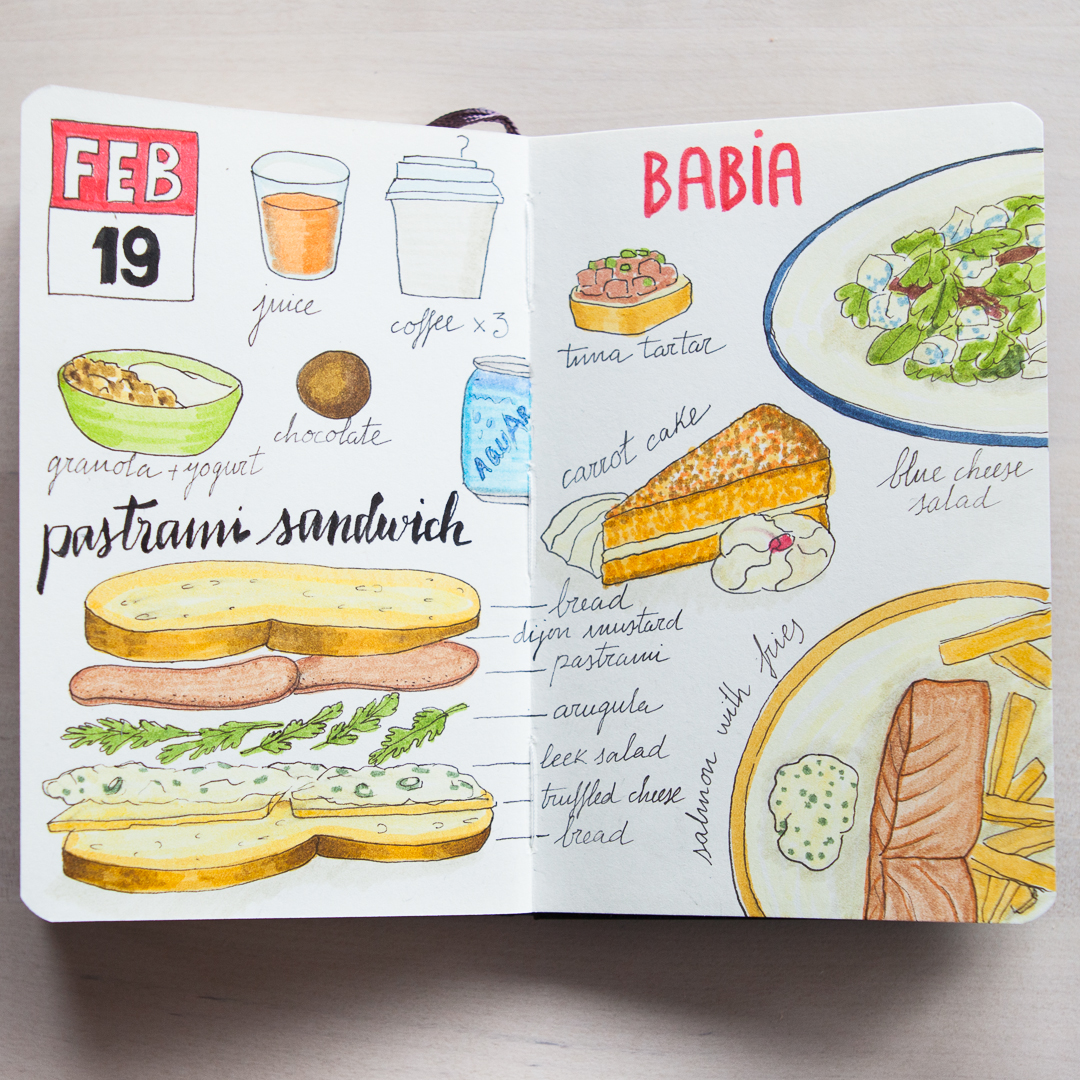 FEB
19
juice
coffee x3
granola + yogurt
chocolate
AQUAR
pastrami sandwich
bread
dijon mustard
pastrami
arugula
leek salad
truffled cheese
bread
BABiA
tuna tartar
blue cheese
salad
carrot cake
salmon with fries